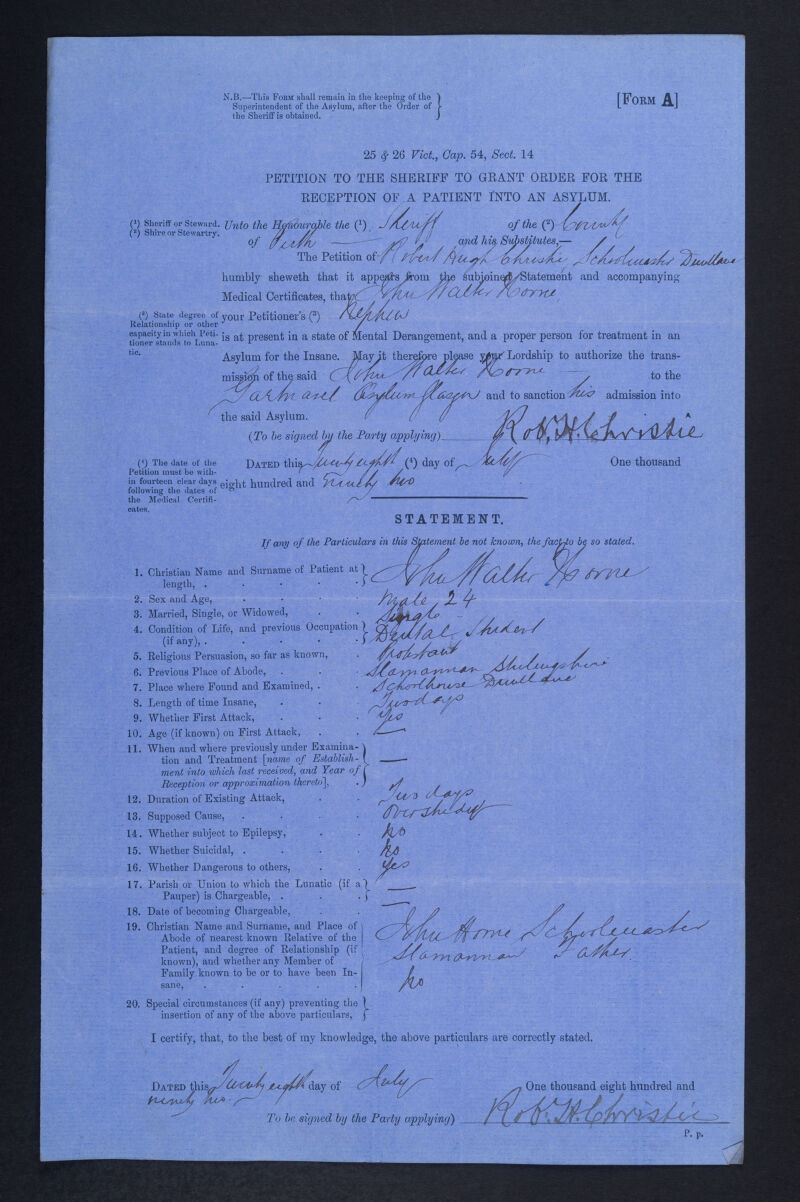 N.B.—This Form shall remain in the keeping of the
Superintendent of the Asylum, after the Order of
the Sheriff is obtained.
[Form A]
25 & 26 Vict., Cap. 54, Sect. 14
PETITION TO THE SHERIFF TO GRANT ORDER FOR THE
RECEPTION OF A PATIENT INTO AN ASYLUM.
(¹) Sheriff or Steward.
(²) Shire or Stewartry.
Unto the Honourable the (¹) Sheriff of the (²) County
of Perth — and his Substitutes,—
The Petition of Robert Hugh Christie, Schoolmaster Dunblane
humbly sheweth that it appears from the subjoined Statement and accompanying
Medical Certificates, that John Walter Horne
(³) State degree of Relationship or other capacity in which Petitioner stands to Lunatic.
your Petitioner's (³) Nephew
is at present in a state of Mental Derangement, and a proper person for treatment in an
Asylum for the Insane. May it therefore please your Lordship to authorize the trans-
mission of the said John Walter Horne — to the
Gartnavel Asylum Glasgow and to sanction his admission into
the said Asylum.
(To be signed by the Party applying) Rob. H. Christie
(⁴) The date of the Petition must be within fourteen clear days following the dates of the Medical Certificates.
Dated this Twenty eighth (⁴) day of July One thousand
eight hundred and ninety two
STATEMENT.
If any of the Particulars in this Statement be not known, the fact to be so stated.
1. Christian Name and Surname of Patient at length, . John Walter Horne
2. Sex and Age, Male 24
3. Married, Single, or Widowed, Single
4. Condition of Life, and previous Occupation (if any), . Dental Student
5. Religious Persuasion, so far as known, Protestant
6. Previous Place of Abode, Slamannan Stirlingshire
7. Place where Found and Examined, . Schoolhouse Dunblane
8. Length of time Insane, Two days
9. Whether First Attack, Yes
10. Age (if known) on First Attack, —
11. When and where previously under Examina-
tion and Treatment [name of Establish-
ment into which last received, and Year of
Reception or approximation thereto], —
12. Duration of Existing Attack, Two days
13. Supposed Cause, Overstudy
14. Whether subject to Epilepsy, No
15. Whether Suicidal, . No
16. Whether Dangerous to others, Yes
17. Parish or Union to which the Lunatic (if a
Pauper) is Chargeable, . —
18. Date of becoming Chargeable, —
19. Christian Name and Surname, and Place of
Abode of nearest known Relative of the
Patient, and degree of Relationship (if
known), and whether any Member of
Family known to be or to have been In-
sane,
John Horne Schoolmaster
Slamannan Father.
No
20. Special circumstances (if any) preventing the
insertion of any of the above particulars,
I certify, that, to the best of my knowledge, the above particulars are correctly stated.
Dated this Twenty eighth day of July One thousand eight hundred and
ninety two.
To be signed by the Party applying) Rob. H. Christie
P. p.